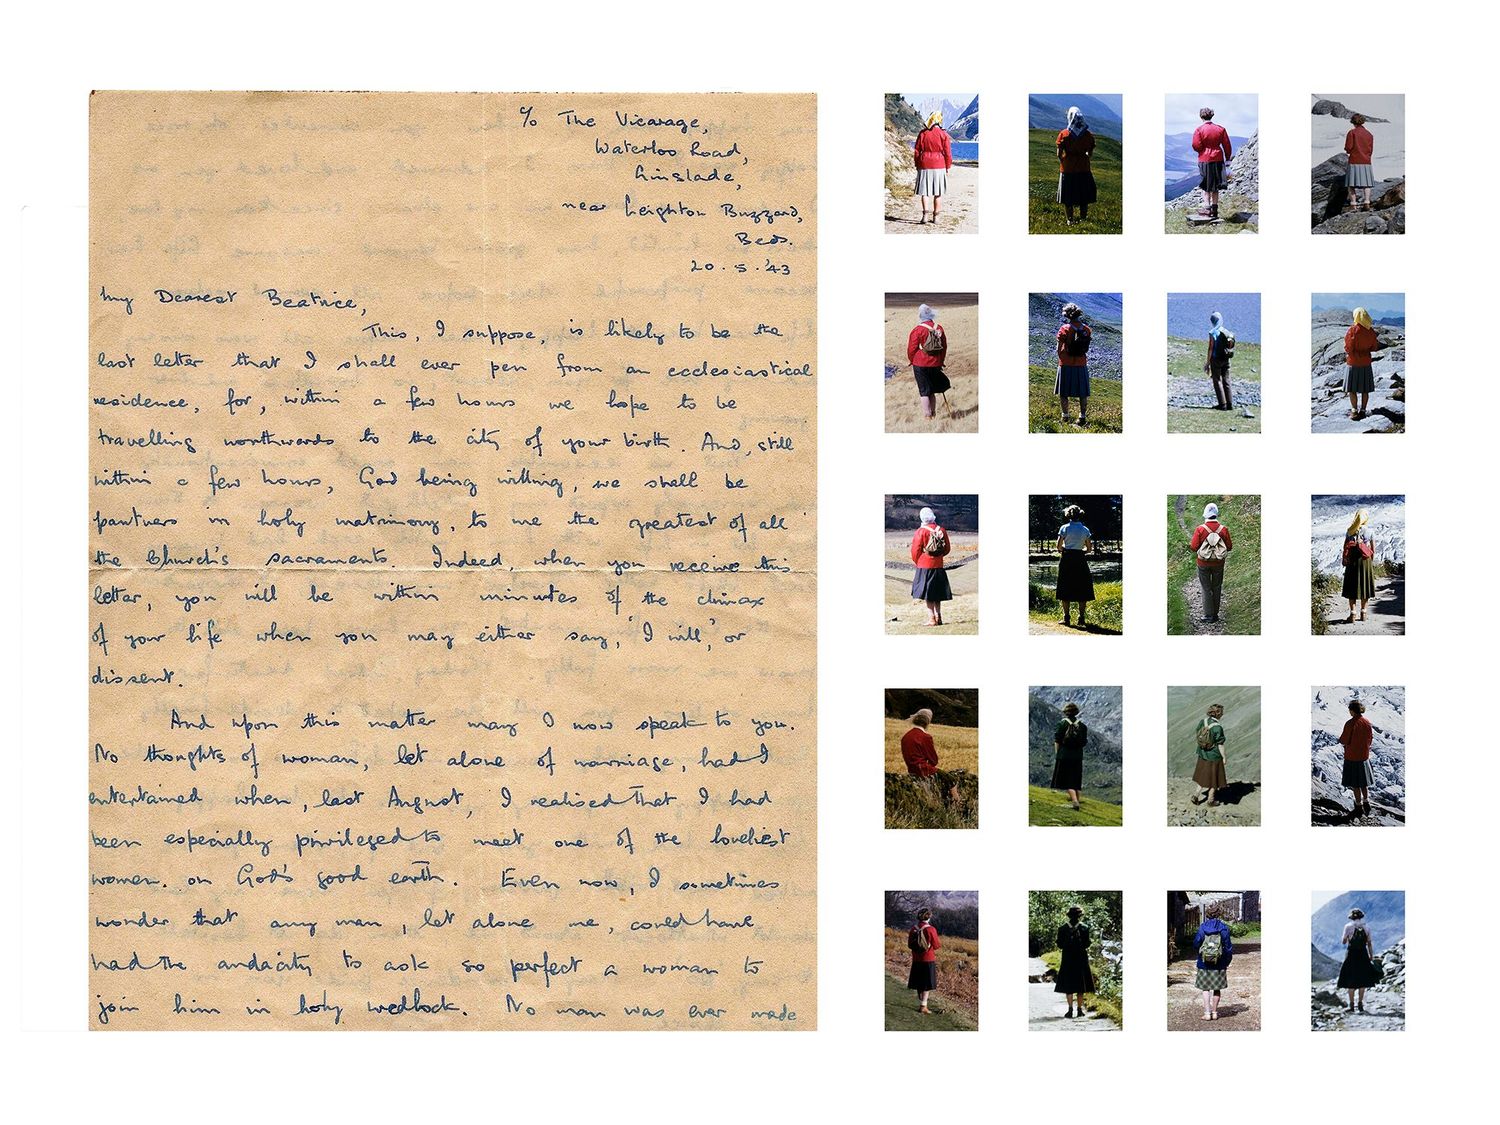 c/o The Vicarage,
Waterloo Road,
Linslade,
near Leighton Buzzard,
Beds.
20.5.'43
My Dearest Beatrice,
This, I suppose, is likely to be the
last letter that I shall ever pen from an ecclesiastical
residence, for, within a few hours we hope to be
travelling northwards to the city of your birth. And, still
within a few hours, God being willing, we shall be
partners in holy matrimony, to me the greatest of all
the Church's sacraments. Indeed, when you receive this
letter, you will be within minutes of the climax
of your life when you may either say, 'I will,' or
dissent.
And upon this matter may I now speak to you.
No thoughts of woman, let alone of marriage, had I
entertained when, last August, I realised that I had
been especially privileged to meet one of the loveliest
women on God's good earth. Even now, I sometimes
wonder that any man, let alone me, could have
had the audacity to ask so perfect a woman to
join him in holy wedlock. No man was ever made